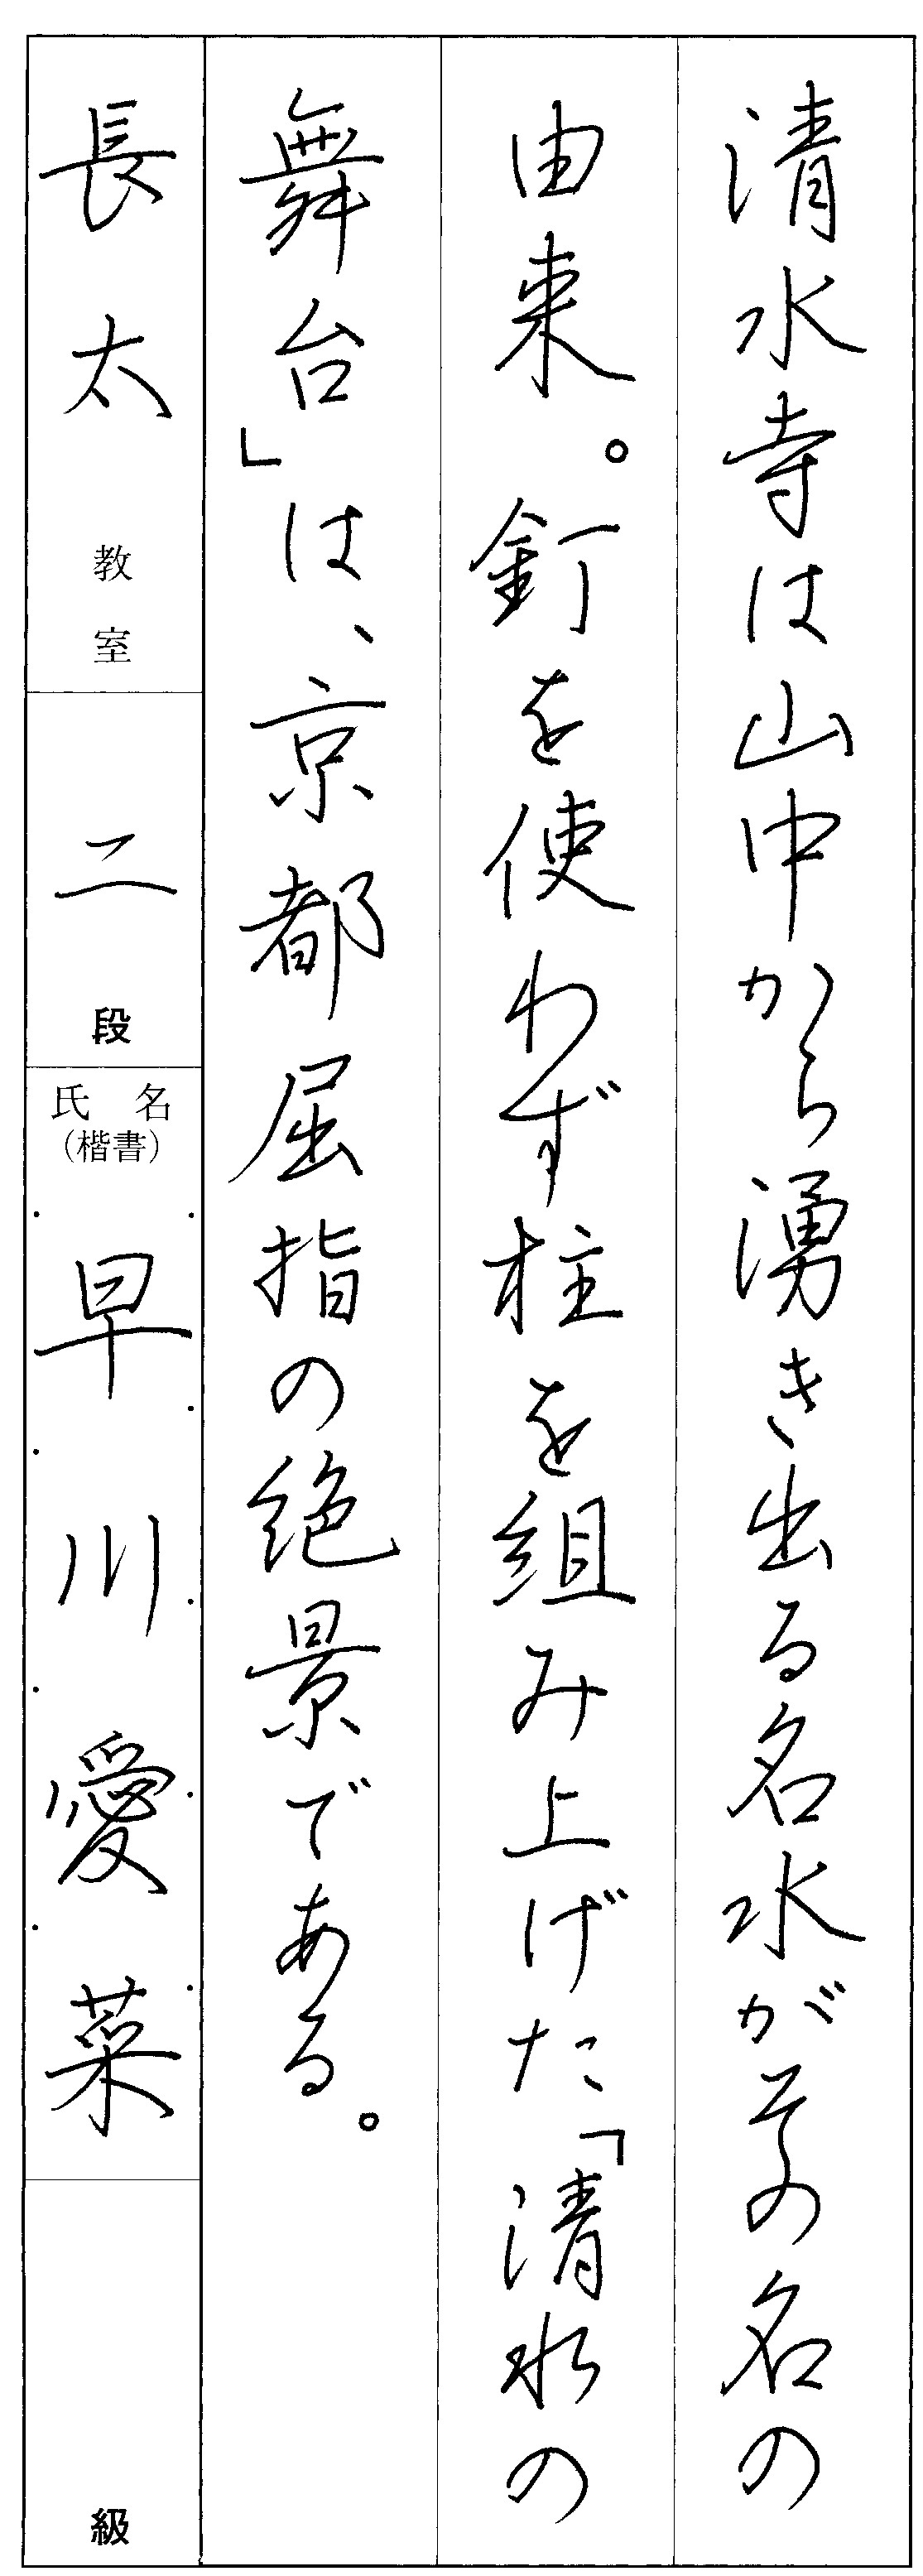 清水寺は山中から湧き出る名水がその名の
由来。釘を使わず柱を組み上げた「清水の
舞台」は、京都屈指の絶景である。
長太 教室
二 段
氏名
（楷書）
早川愛菜
級